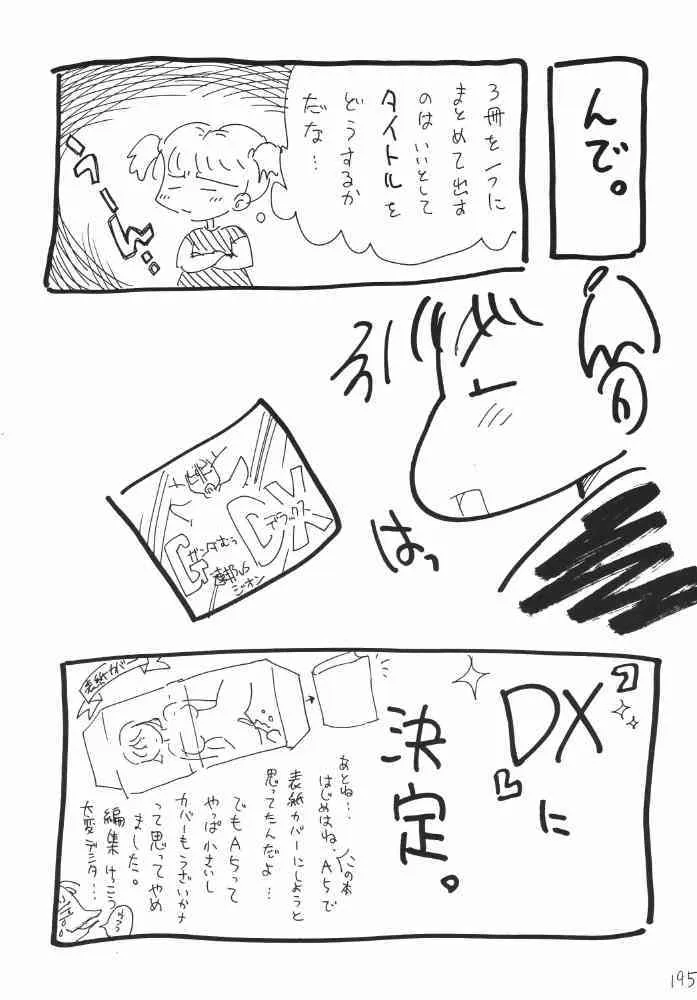 んで。
3冊を一つに
まとめて出す
のはいいとして
タイトルを
どうするか
だな…
うーん…
はっ
ガンダむぅ
DX
デラックス
連邦VS
ジオン
『DX』に
決定。
表紙カバー
あとね…
はじめはね、この本
A5で
表紙カバーにしようと
思ってたんだよ…
でもA5って
やっぱ小さいし
カバーもうざいかナ
って思ってやめ
ました。
編集けっこう
大変デシタ…
195